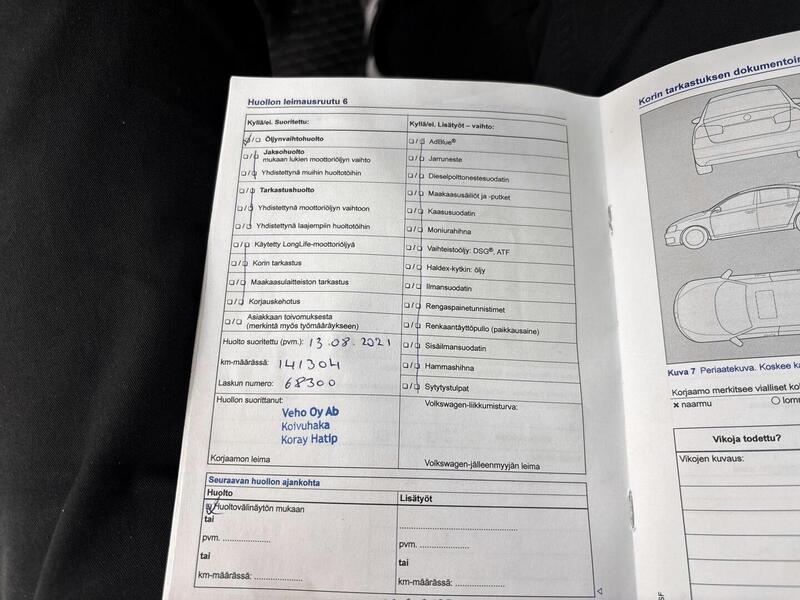 Huollon leimausruutu 6
Kyllä/ei. Suoritettu:
Öljynvaihtohuolto
Jaksohuolto
mukaan lukien moottoriöljyn vaihto
Yhdistettynä muihin huoltotöihin
Tarkastushuolto
Yhdistettynä moottoriöljyn vaihtoon
Yhdistettynä laajempiin huoltotöihin
Käytetty LongLife-moottoriöljyä
Korin tarkastus
Maakaasulaitteiston tarkastus
Korjauskehotus
Asiakkaan toivomuksesta
(merkintä myös työmääräykseen)
Huolto suoritettu (pvm.): 13.08.2021
km-määrässä: 141304
Laskun numero: 68300
Huollon suorittanut:
Veho Oy Ab
Koivuhaka
Koray Hatip
Korjaamon leima
Kyllä/ei. Lisätyöt – vaihto:
AdBlue®
Jarruneste
Dieselpolttonestesuodatin
Maakaasusäiliöt ja -putket
Kaasusuodatin
Moniurahihna
Vaihteistoöljy: DSG®, ATF
Haldex-kytkin: öljy
Ilmansuodatin
Rengaspainetunnistimet
Renkaantäyttöpullo (paikkausaine)
Sisäilmansuodatin
Hammashihna
Sytytystulpat
Volkswagen-liikkumisturva:
Volkswagen-jälleenmyyjän leima
Seuraavan huollon ajankohta
Huolto
Huoltovälinäytön mukaan
tai
pvm. ....................
tai
km-määrässä: ....................
Lisätyöt
pvm. ....................
tai
km-määrässä: ....................
Korin tarkastuksen dokumentoin
Kuva 7 Periaatekuva. Koskee ka
Korjaamo merkitsee vialliset ko
× naarmu
○ lomm
Vikoja todettu?
Vikojen kuvaus: